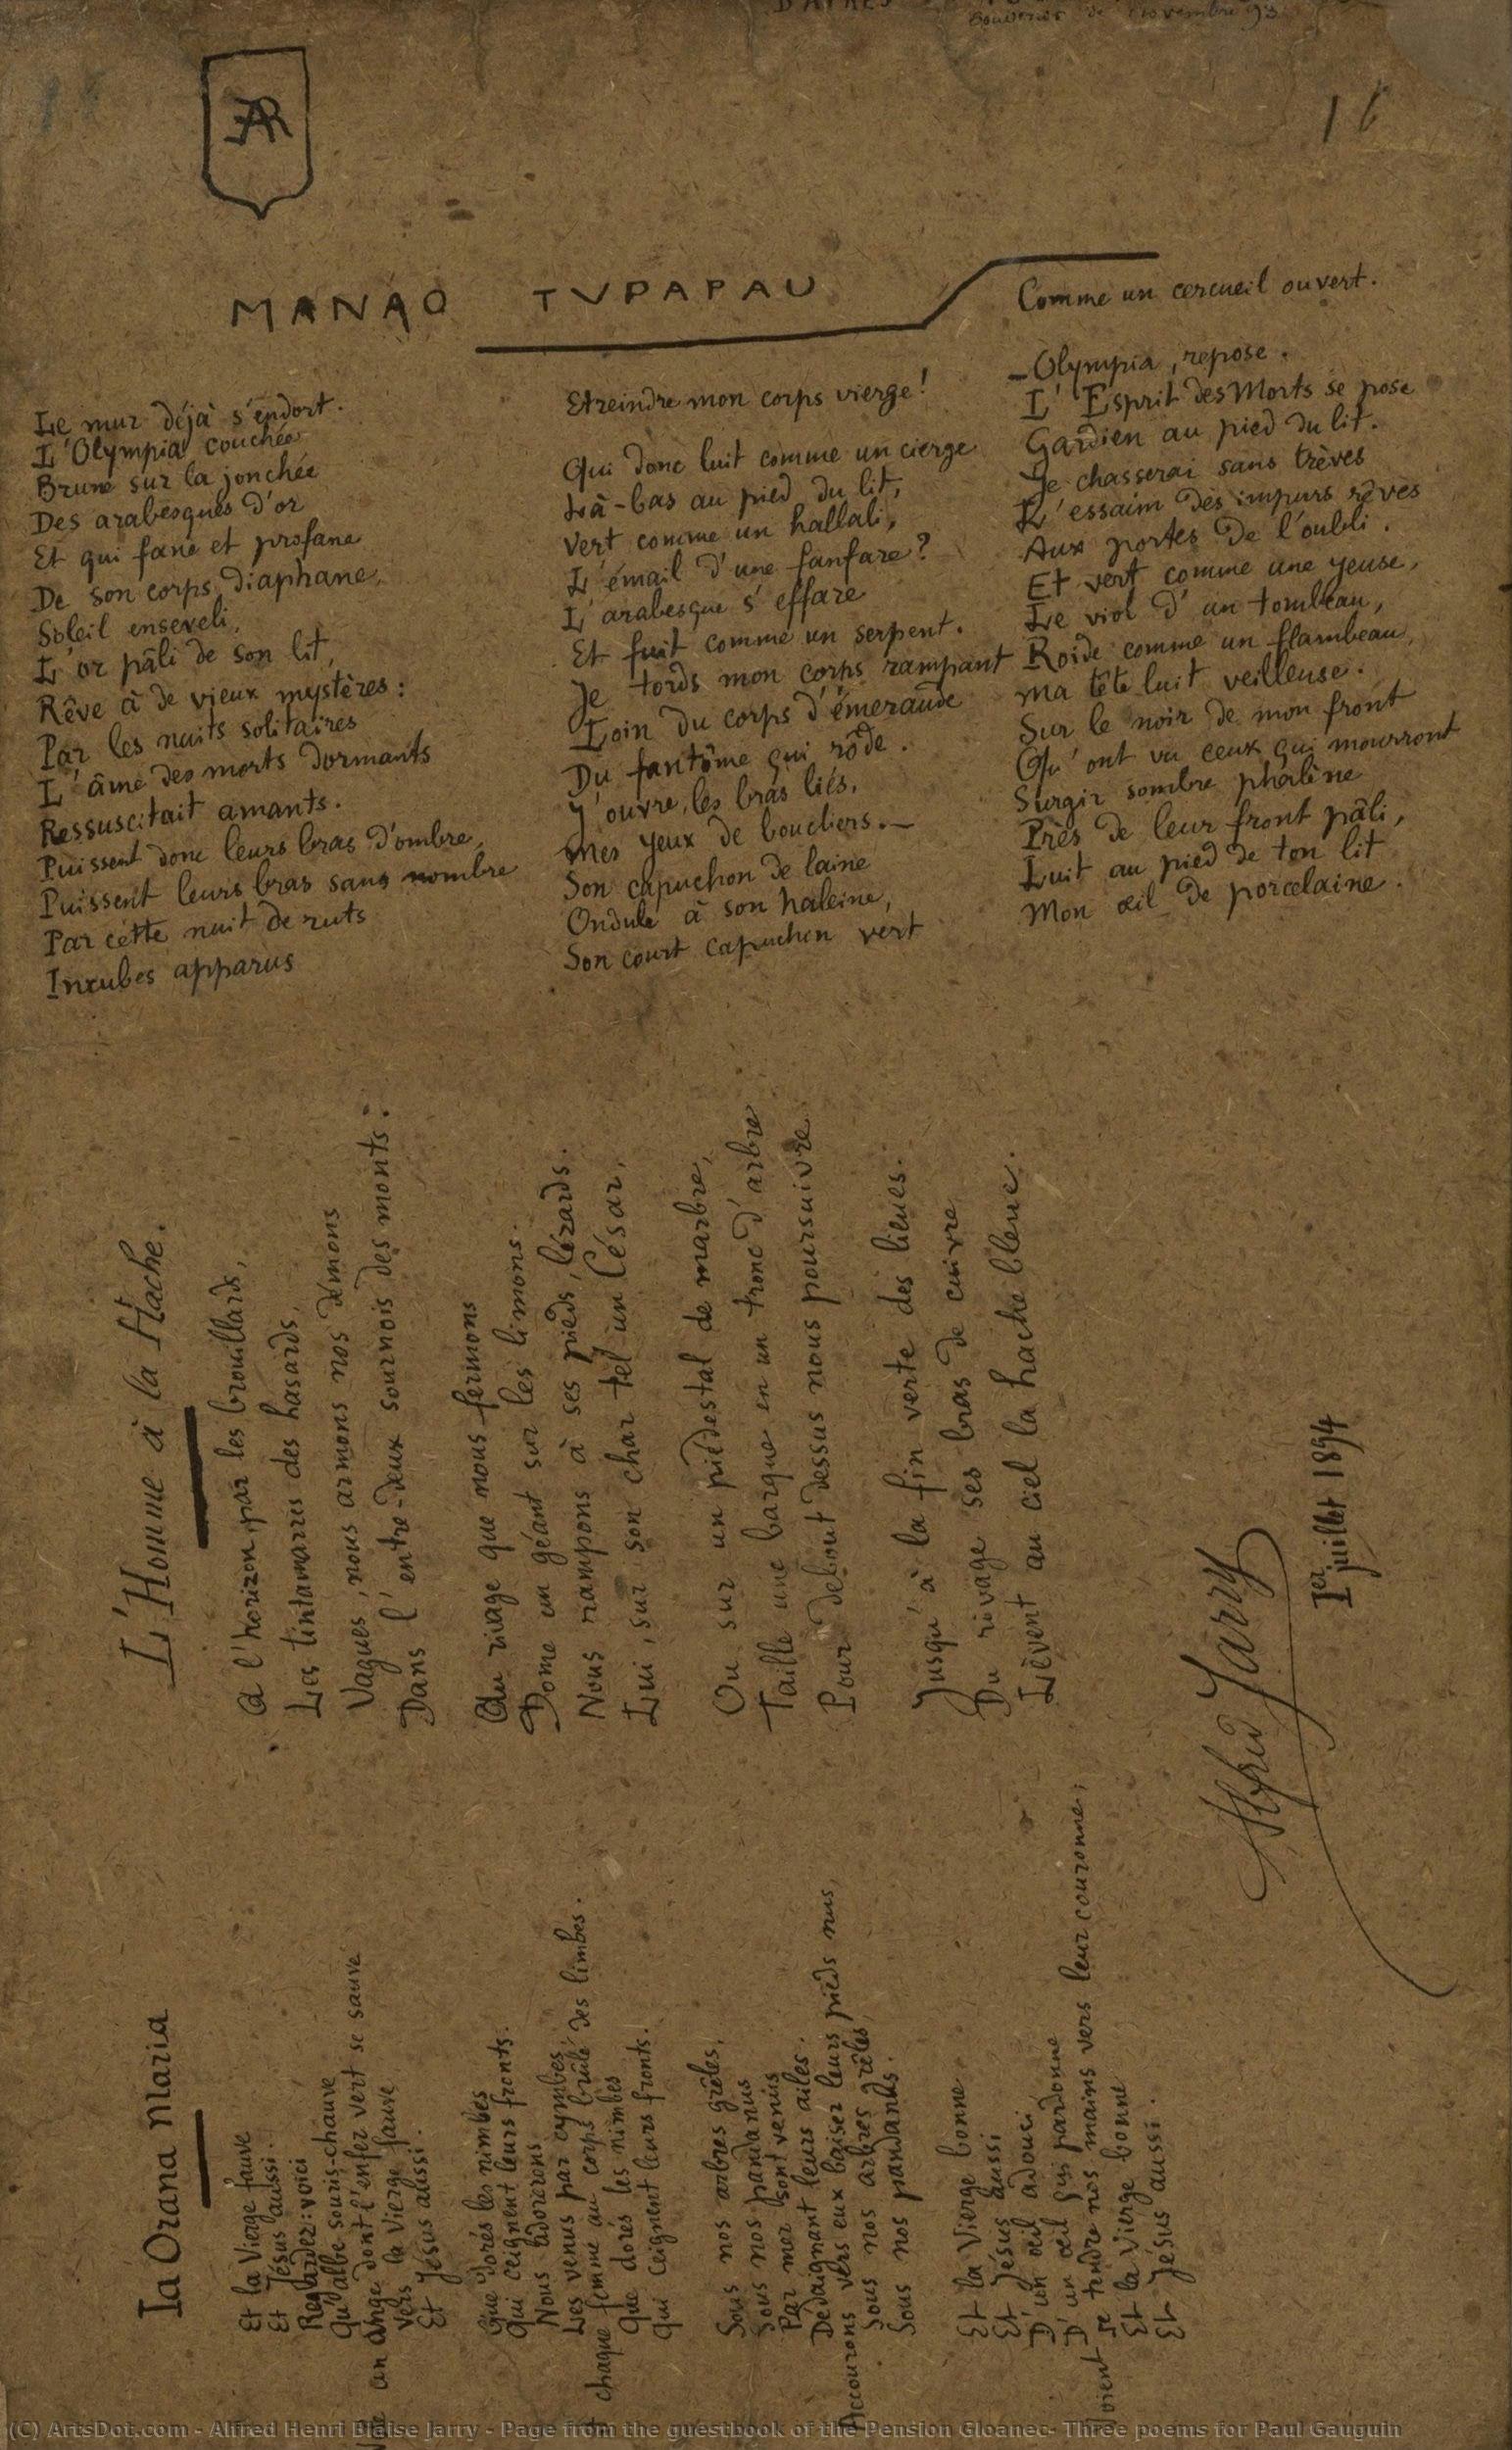 D'APRÈS
Souvenir de Novembre 93
16
AR
MANAO TVPAPAU
Le mur déjà s'endort.
L'Olympia couchée
Brune sur la jonchée
Des arabesques d'or
Et qui fane et profane
De son corps diaphane,
Soleil enseveli,
L'or pâli de son lit,
Rêve à de vieux mystères:
Par les nuits solitaires
L'âme des morts dormants
Ressuscitait amants.
Puissent donc leurs bras d'ombre,
Puissent leurs bras sans nombre
Par cette nuit de ruts
Incubes apparus
Etreindre mon corps vierge!
Qui donc luit comme un cierge
Là-bas au pied du lit,
Vert comme un hallali,
L'émail d'une fanfare?
L'arabesque s'effare
Et fuit comme un serpent.
Je tords mon corps rampant
Loin du corps d'émeraude
Du fantôme qui rôde.
J'ouvre, les bras liés,
Mes yeux de boucliers.—
Son capuchon de laine
Ondule à son haleine,
Son court capuchon vert
Comme un cercueil ouvert.
—Olympia, repose.
L'Esprit des Morts se pose
Gardien au pied du lit.
Je chasserai sans trèves
L'essaim des impurs rêves
Aux portes de l'oubli.
Et vert comme une yeuse,
Le viol d'un tombeau,
Roide comme un flambeau,
Ma tête luit veilleuse.
Sur le noir de mon front
Qu'ont vu ceux qui mourront
Surgir sombre phalène
Près de leur front pâli,
Luit au pied de ton lit
Mon œil de porcelaine.
L'Homme à la Hache.
A l'horizon, par les brouillards,
Les tintamarres des hasards,
Vagues, nous armons nos démons
Dans l'entre-deux sournois des monts.
Au rivage que nous fermons
Dome un géant sur les limons.
Nous rampons à ses pieds, lézards.
Lui, sur son char tel un César,
Ou sur un piédestal de marbre,
Taille une barque en un tronc d'arbre
Pour debout dessus nous poursuivre
Jusqu'à la fin verte des lieues.
Du rivage ses bras de cuivre
Lèvent au ciel la hache bleue.
Ia Orana Maria
Et la Vierge fauve
Et Jésus aussi.
Regardez: voici
Qu'albe souris-chauve
un ange dont l'enfer vert se sauve
Vers la Vierge fauve
Et Jésus aussi.
Que dorés les nimbes
Qui ceignent leurs fronts.
Nous adorerons
Les venus par cymbes,
chaque femme au corps brûlé des limbes.
Que dorés les nimbes
Qui ceignent leurs fronts.
Sous nos arbres grêles,
Sous nos pandanus
Par mer sont venus
Dédaignant leurs ailes.
Accourons vers eux baiser leurs pieds nus,
Sous nos arbres grêles
Sous nos pandanus.
Et la Vierge bonne
Et Jésus aussi
D'un œil adouci
D'un œil qui pardonne
Voient se tendre nos mains vers leur couronne;
Et la Vierge bonne
Et Jésus aussi.
Alfred Jarry
1er juillet 1894
(C) ArtsDot.com - Alfred Henri Blaise Jarry - Page from the guestbook of the Pension Gloanec- Three poems for Paul Gauguin